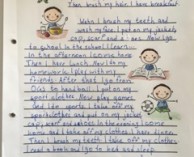 Then brush my hair. I have breakfast
When I brush my teeth and
wash my face. I put on my jacket,
cap, scarf and
to school. In the school I learn.
In the afternoon I come home
Then I have lunch. Now I do my
homework. I play with my
friends. After that I go from
to hand ball. I put on my
sport clothes. Now play games.
And then sports I take off my
sport clothes and put on my jacket
cap, scarf and clothes. In the evening I come
home and I take off my clothes. I have dinner.
Then I brush my teeth. I take off my clothes
read a book and go to bed and sleep.